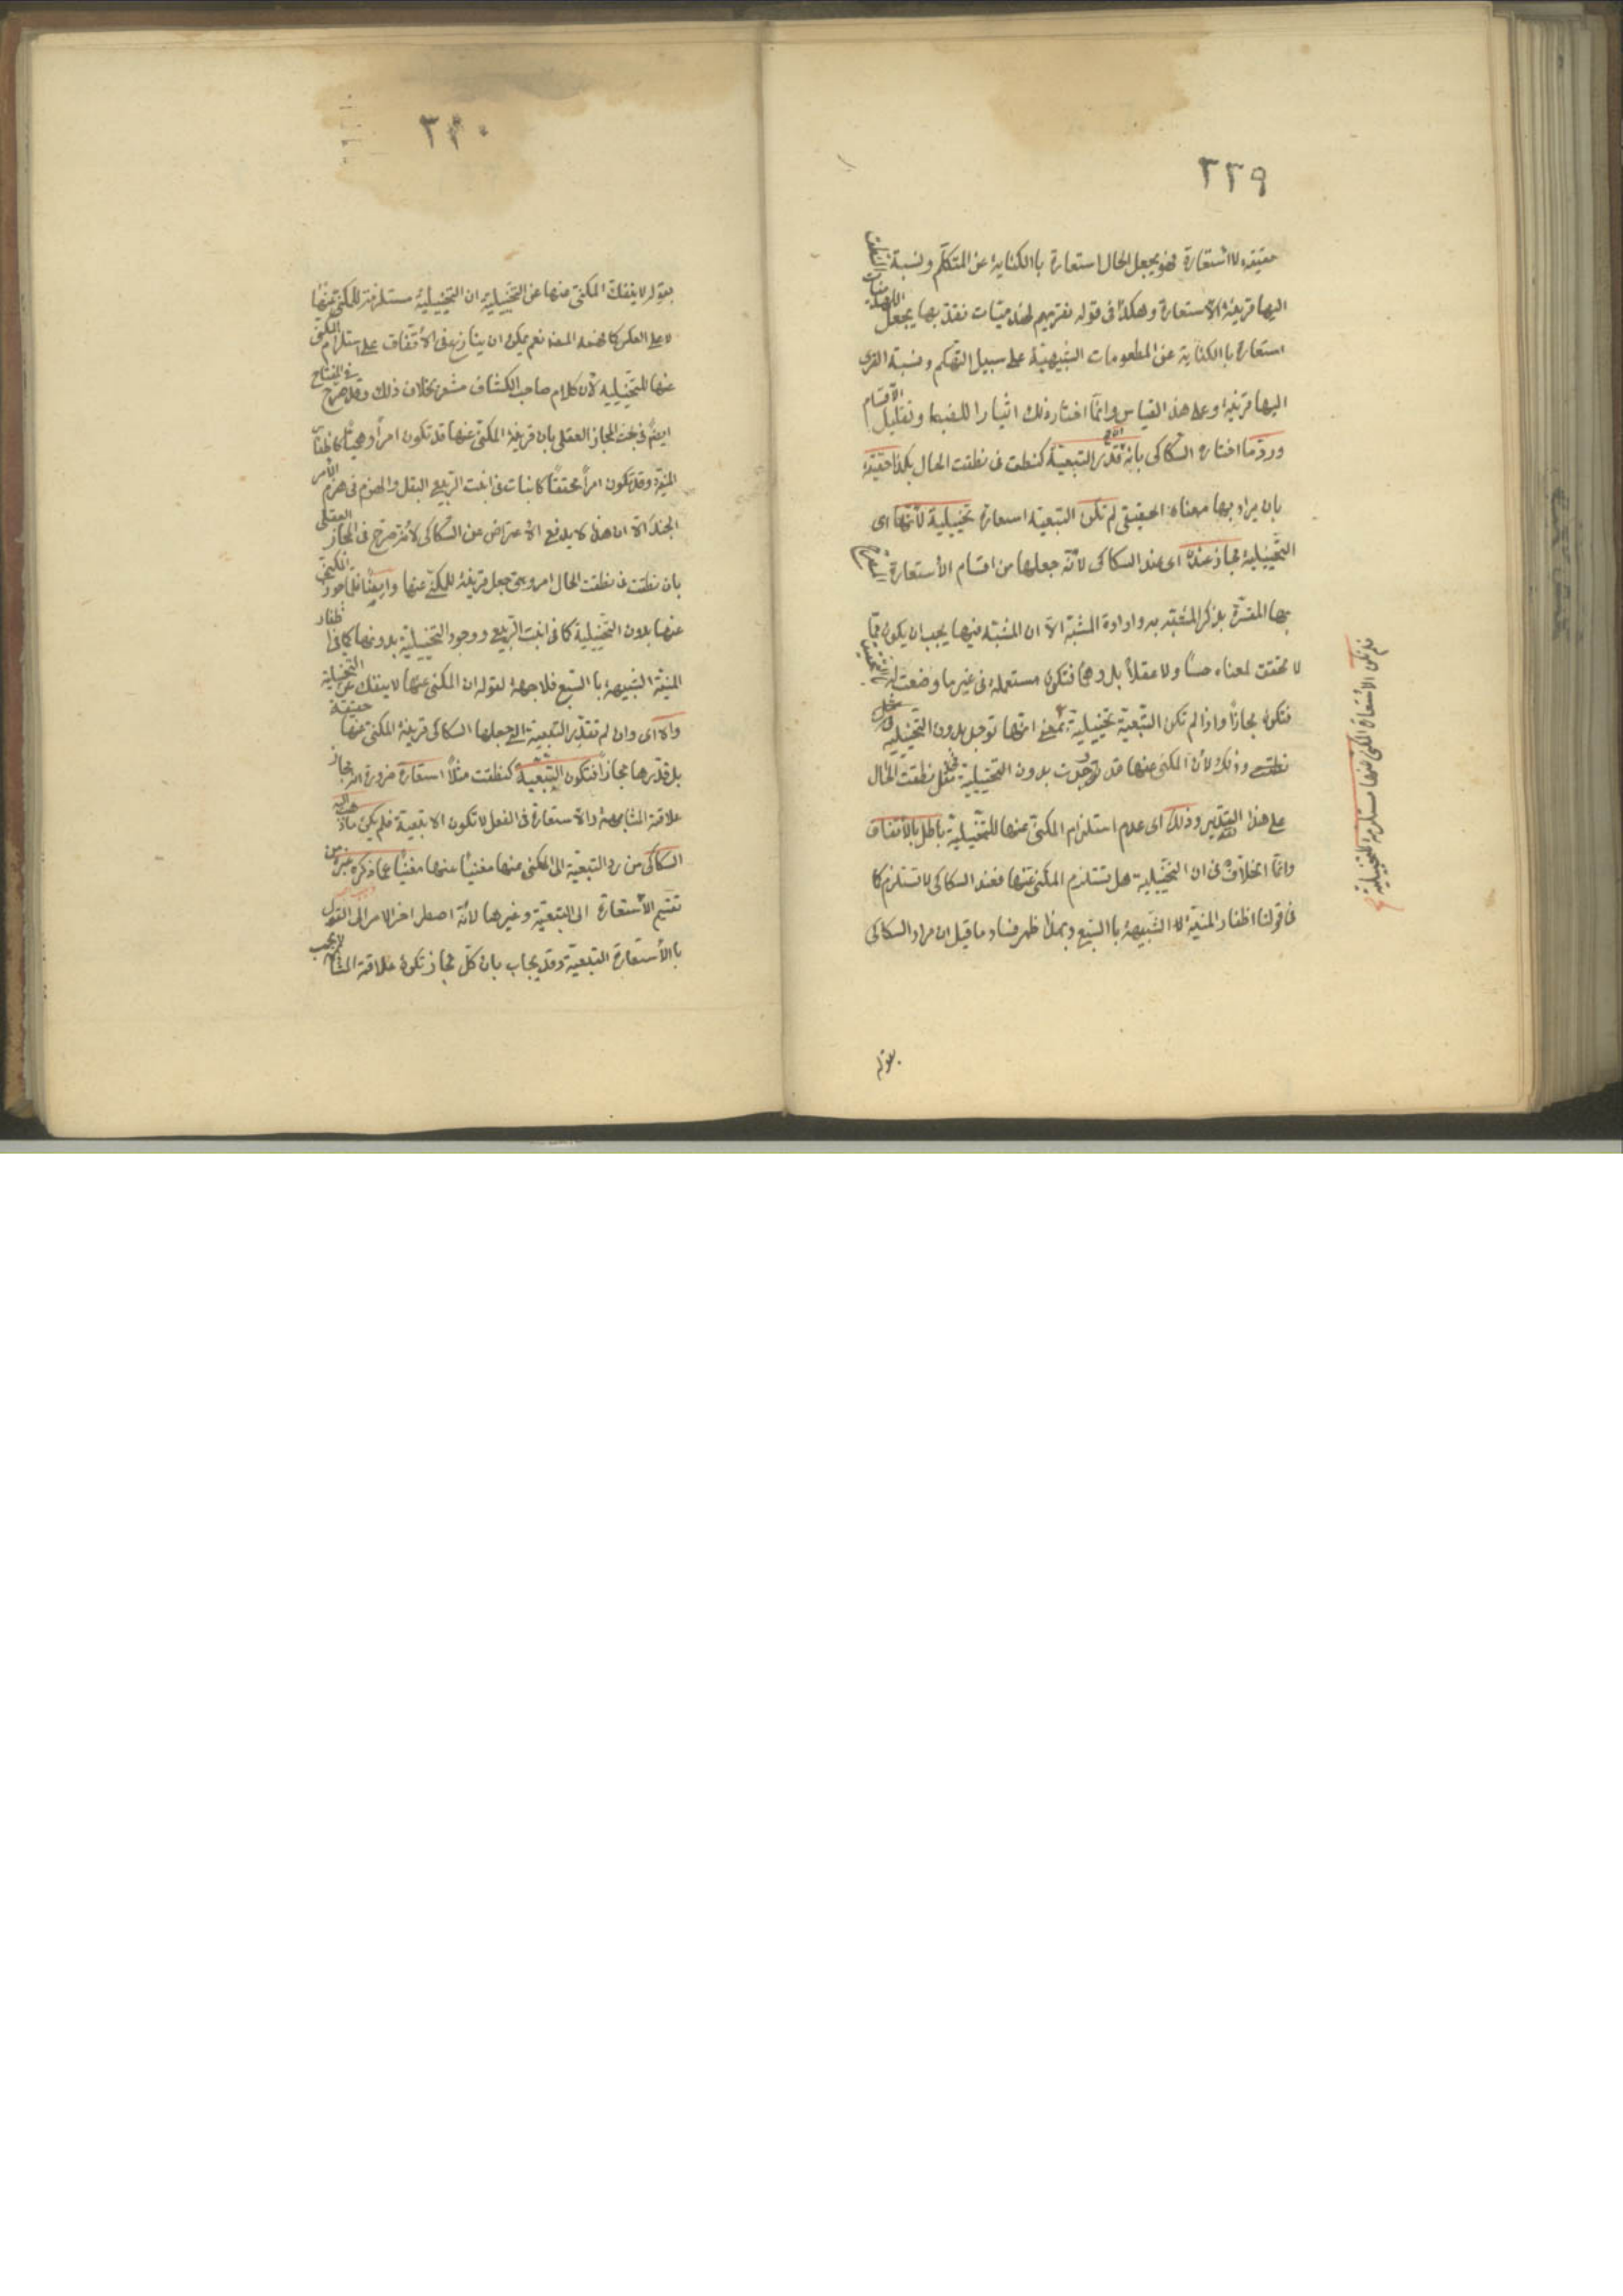 ٣٣٩
حقيقة لا استعارة فهو يجعل الحال استعارة باالكناية عن المتكلم ونسبة النطق
اليها قرينة الاستعارة وهكذا فى قوله نقريهم لهذميات نقد بها يجعل اللهذميات
استعارة باالكناية عن المطعومات الشهية على سبيل التهكم ونسبة القرى
اليها قرينة وعلى هذا القياس وانما اختار ذلك ايثارا للضبط وتقليل الاقسام
ورد ما اختاره السكاكى بانه ان قدر التبعية كنطقت فى نطقت الحال بكذا حقيقة
بان يراد بها معناه الحقيقى لم تكن التبعية استعارة تخييلية لانها اى
التخييلية مجاز عنده اى عند السكاكى لانه جعلها من اقسام الاستعارة المصرح
بها المفسرة بذكر المشبه به وارادة المشبه الا ان المشبه فيها يجب ان يكون مما
لا تحقق لمعناه حسا ولا عقلا بل وهما فتكون مستعملة فى غير ما وضعت له بالتحقيق
فتكون مجازا واذا لم تكن التبعية تخييلية بمعنى انها توجد بدون التخييلية
نطقت وذلك لان المكنى عنها قد وجدت بدون التخييلية فى مثل نطقت الحال
على هذا التقدير وذلك اى عدم استلزام المكنى عنها للتخييلية باطل بالاتفاق
وانما الخلاف فى ان التخييلية هل تستلزم المكنى عنها فعند السكاكى لا تستلزم كما
فى قولنا اظفار المنية الشبيهة باالسبع وبهذا ظهر فساد ما قيل ان مراد السكاكى
بقوله
فلم تكن الاستعارة المكنى عنها مستلزمة للتخييلية
٣٤٠
بقوله لا ينفك المكنى عنها عن التخييلية ان التخييلية مستلزمة للمكنى عنها
لا على العكس كما فهمه المص نعم يمكن ان ينازع فى الاتفاق على استلزام المكنى
عنها للتخييلية لان كلام صاحب الكشاف مشعر بخلاف ذلك وقد صرح فى المفتاح
ايضا فى بحث المجاز العقلى بان قرينة المكنى عنها قد تكون امرا وهميا كاظفار
المنية وقد تكون امرا محققا كالانبات فى انبت الربيع البقل والهزم فى هزم الامير
الجند الا ان هذا لا يدفع الاعتراض عن السكاكى لانه صرح فى المجاز العقلى
بان نطقت فى نطقت الحال امر وهمى جعل قرينة للمكنى عنها وايضا فلما جوز المكنى
عنها بدون التخييلية كما فى انبت الربيع ووجود التخييلية بدونها كما فى اظفار
المنية الشبيهة باالسبع فلا جهة لقوله ان المكنى عنها لا ينفك عن التخييلية
والا اى وان لم تقدر التبعية التى جعلها السكاكى قرينة المكنى عنها حقيقة
بل قدرها مجازا فتكون التبعية كنطقت مثلا استعارة ضرورة انه مجاز
علاقته المشابهة والاستعارة فى الفعل لا تكون الا تبعية فلم يكن ما ذهب اليه
السكاكى من رد التبعية الى المكنى عنها مغنيا عنها مغنيا عما ذكره غيره من
تقسيم الاستعارة الى التبعية وغيرها لانه اضطر اخر الامر الى القول
باالاستعارة التبعية وقد يجاب بان كل مجاز تكون علاقته المشابهة لا يجب